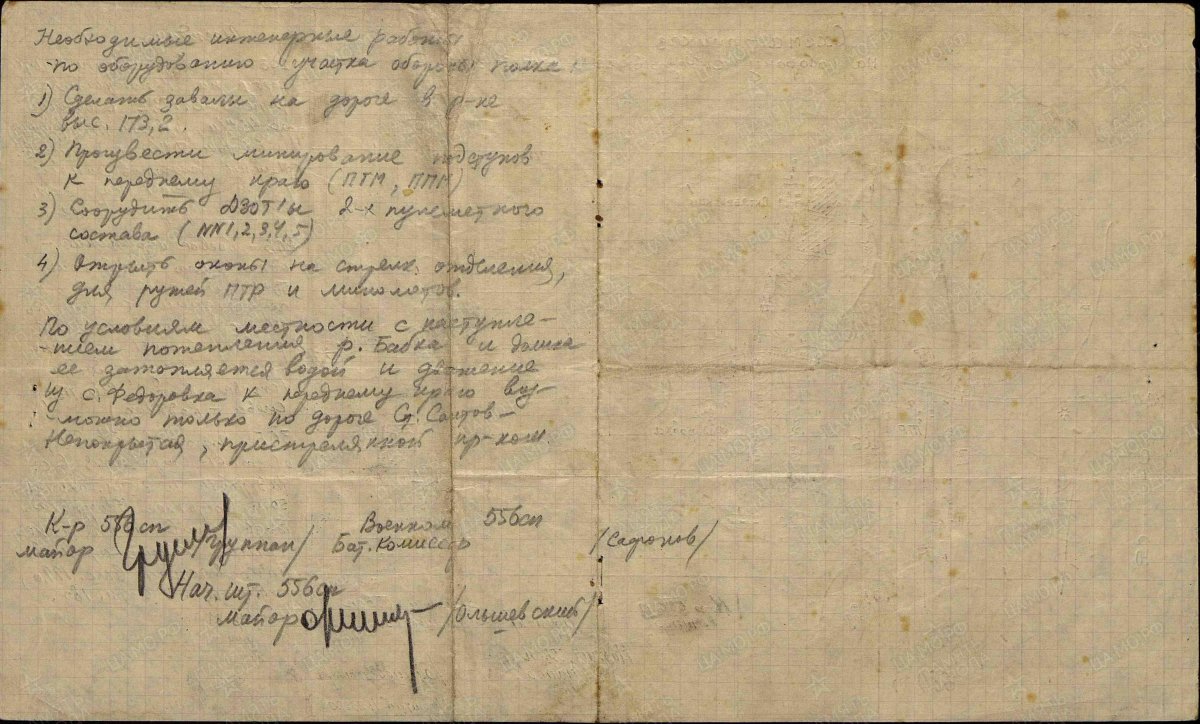 Необходимые инженерные работы
по оборудованию участка обороны полка:
1) Сделать завалы на дороге в р-не
выс. 173,2.
2) Произвести минирование подступов
к переднему краю (ПТМ, ППМ)
3) Соорудить ДЗОТ'ы 2-х пулеметного
состава (NN1,2,3,4,5)
4) Отрыть окопы на стрелк. отделения,
для ружей ПТР и минометов.
По условиям местности с наступле-
-нием потепления р. Бабка и долина
ее затопляется водой и движение
из с. Федоровка к переднему краю воз-
можно только по дороге Ст. Салтов-
Непокрытая, пристрелянной пр-ком.
К-р 556сп Военком 556сп
майор /Группан/ Бат. Комиссар /Сафонов/
Нач. шт. 556сп
майор /Ольшевский/